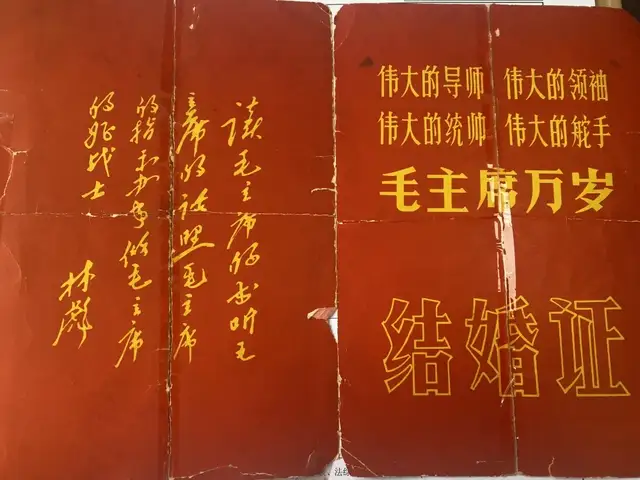 伟大的导师 伟大的领袖
伟大的统帅 伟大的舵手
毛主席万岁
结婚证
读毛主席的书听毛
主席的话照毛主席
的指示办事做毛主席
的好战士
林彪